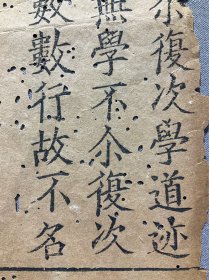 尒復次學道迹
無學不尒復次
數數行故不名